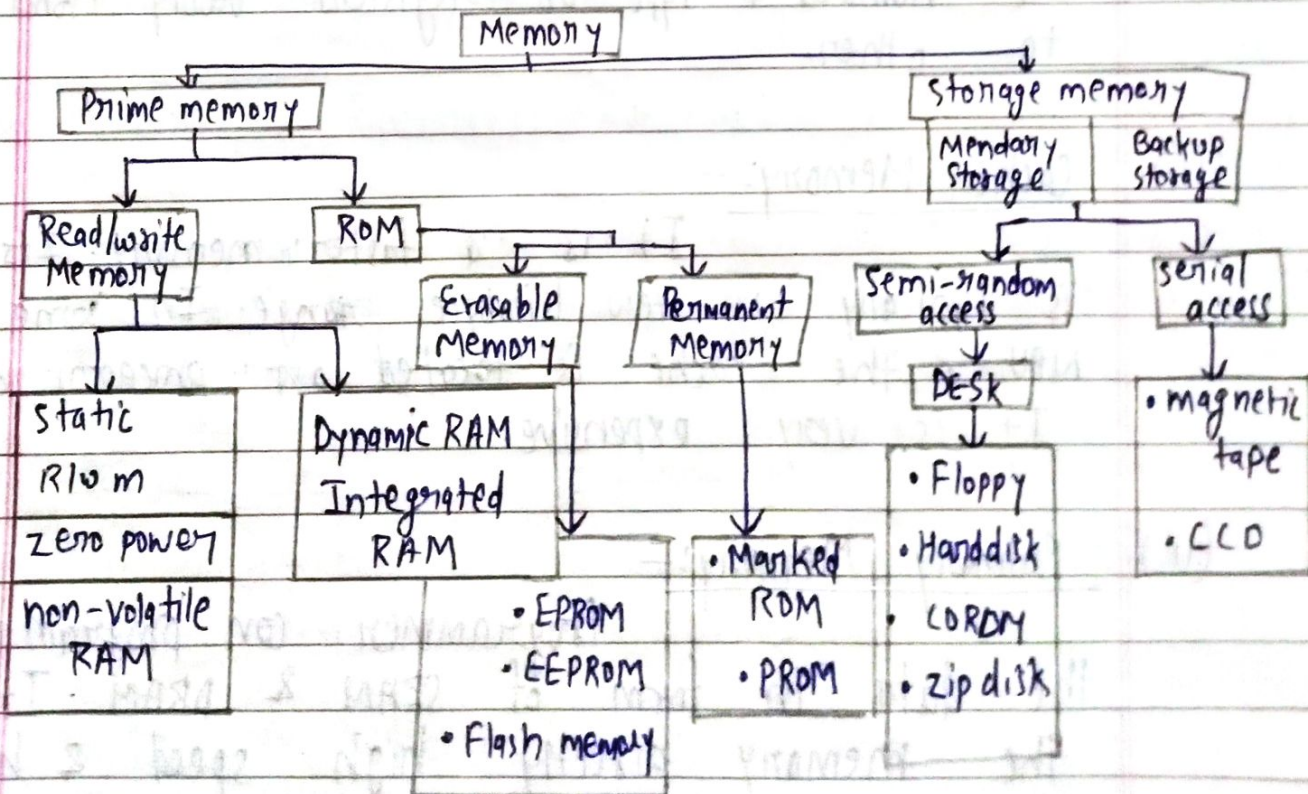 Memory
Prime memory
Storage memory
Mendary
Storage
Backup
storage
Read/write
Memory
ROM
Erasable
Memory
Permanent
Memory
Semi-random
access
Serial
access
DESK
Static
R/W m
zero power
non-volatile
RAM
Dynamic RAM
Integrated
RAM
• EPROM
• EEPROM
• Flash memory
• Marked
ROM
• PROM
• Floppy
• Harddisk
• CDROM
• zip disk
• magnetic
tape
• CCD